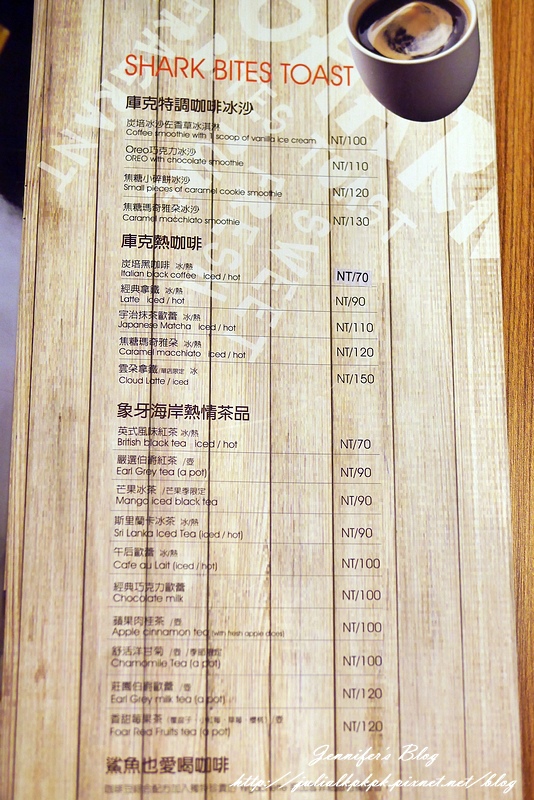 SHARK BITES TOAST
庫克特調咖啡冰沙
炭培冰沙佐香草冰淇淋
Coffee smoothie with 1 scoop of vanilla ice cream NT/100
Oreo巧克力冰沙
OREO with chocolate smoothie NT/110
焦糖小碎餅冰沙
Small pieces of caramel cookie smoothie NT/120
焦糖瑪奇雅朵冰沙
Caramel macchiato smoothie NT/130
庫克熱咖啡
炭培黑咖啡 冰/熱
Italian black coffee iced / hot NT/70
經典拿鐵 冰/熱
Latte iced / hot NT/90
宇治抹茶歐蕾 冰/熱
Japanese Matcha iced / hot NT/110
焦糖瑪奇雅朵 冰/熱
Caramel macchiato iced / hot NT/120
雲朵拿鐵/單店限定 冰
Cloud Latte / iced NT/150
象牙海岸熱情茶品
英式風味紅茶 冰/熱
British black tea iced / hot NT/70
嚴選伯爵紅茶 /壺
Earl Grey tea (a pot) NT/90
芒果冰茶 /芒果季限定
Mango iced black tea NT/90
斯里蘭卡冰茶 冰/熱
Sri Lanka Iced Tea (iced / hot) NT/90
午后歐蕾 冰/熱
Cafe au Lait (iced / hot) NT/100
經典巧克力歐蕾
Chocolate milk NT/100
蘋果肉桂茶 /壺
Apple cinnamon tea (with fresh apple dices) NT/100
舒活洋甘菊 /壺 /季節限定
Chamomile Tea (a pot) NT/100
莊園伯爵歐蕾 /壺
Earl Grey milk tea (a pot) NT/120
香甜莓果茶 /壺
Foar Red Fruits tea (a pot) NT/120
鯊魚也愛喝咖啡
Jennifer's Blog
http://julialkpkpk.pixnet.net/blog